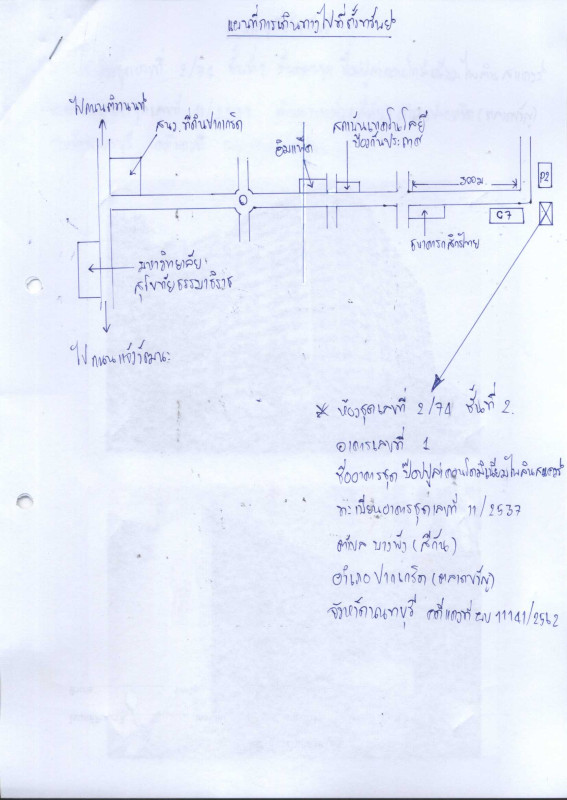 แผนที่การเดินทางไปที่ตั้งทรัพย์
ไปถนนติวานนท์
สนง. ที่ดินปากเกร็ด
อิมแพ็ค
สถาบันเทคโนโลยี
ป้องกันประเทศ
300 ม.
P2
C7
ธนาคารกสิกรไทย
มหาวิทยาลัย
สุโขทัยธรรมาธิราช
ไปถนนแจ้งวัฒนะ
* ห้องชุดเลขที่ 2/74 ชั้นที่ 2
อาคารเลขที่ 1
ชื่ออาคารชุด ป๊อปปูล่าคอนโดมิเนียม
ทะเบียนอาคารชุดเลขที่ 11/2537
ตำบล บางพูด (สีกัน)
อำเภอ ปากเกร็ด (ตลาดขวัญ)
จังหวัดนนทบุรี คดีแดงที่ ผบ 11141/2562